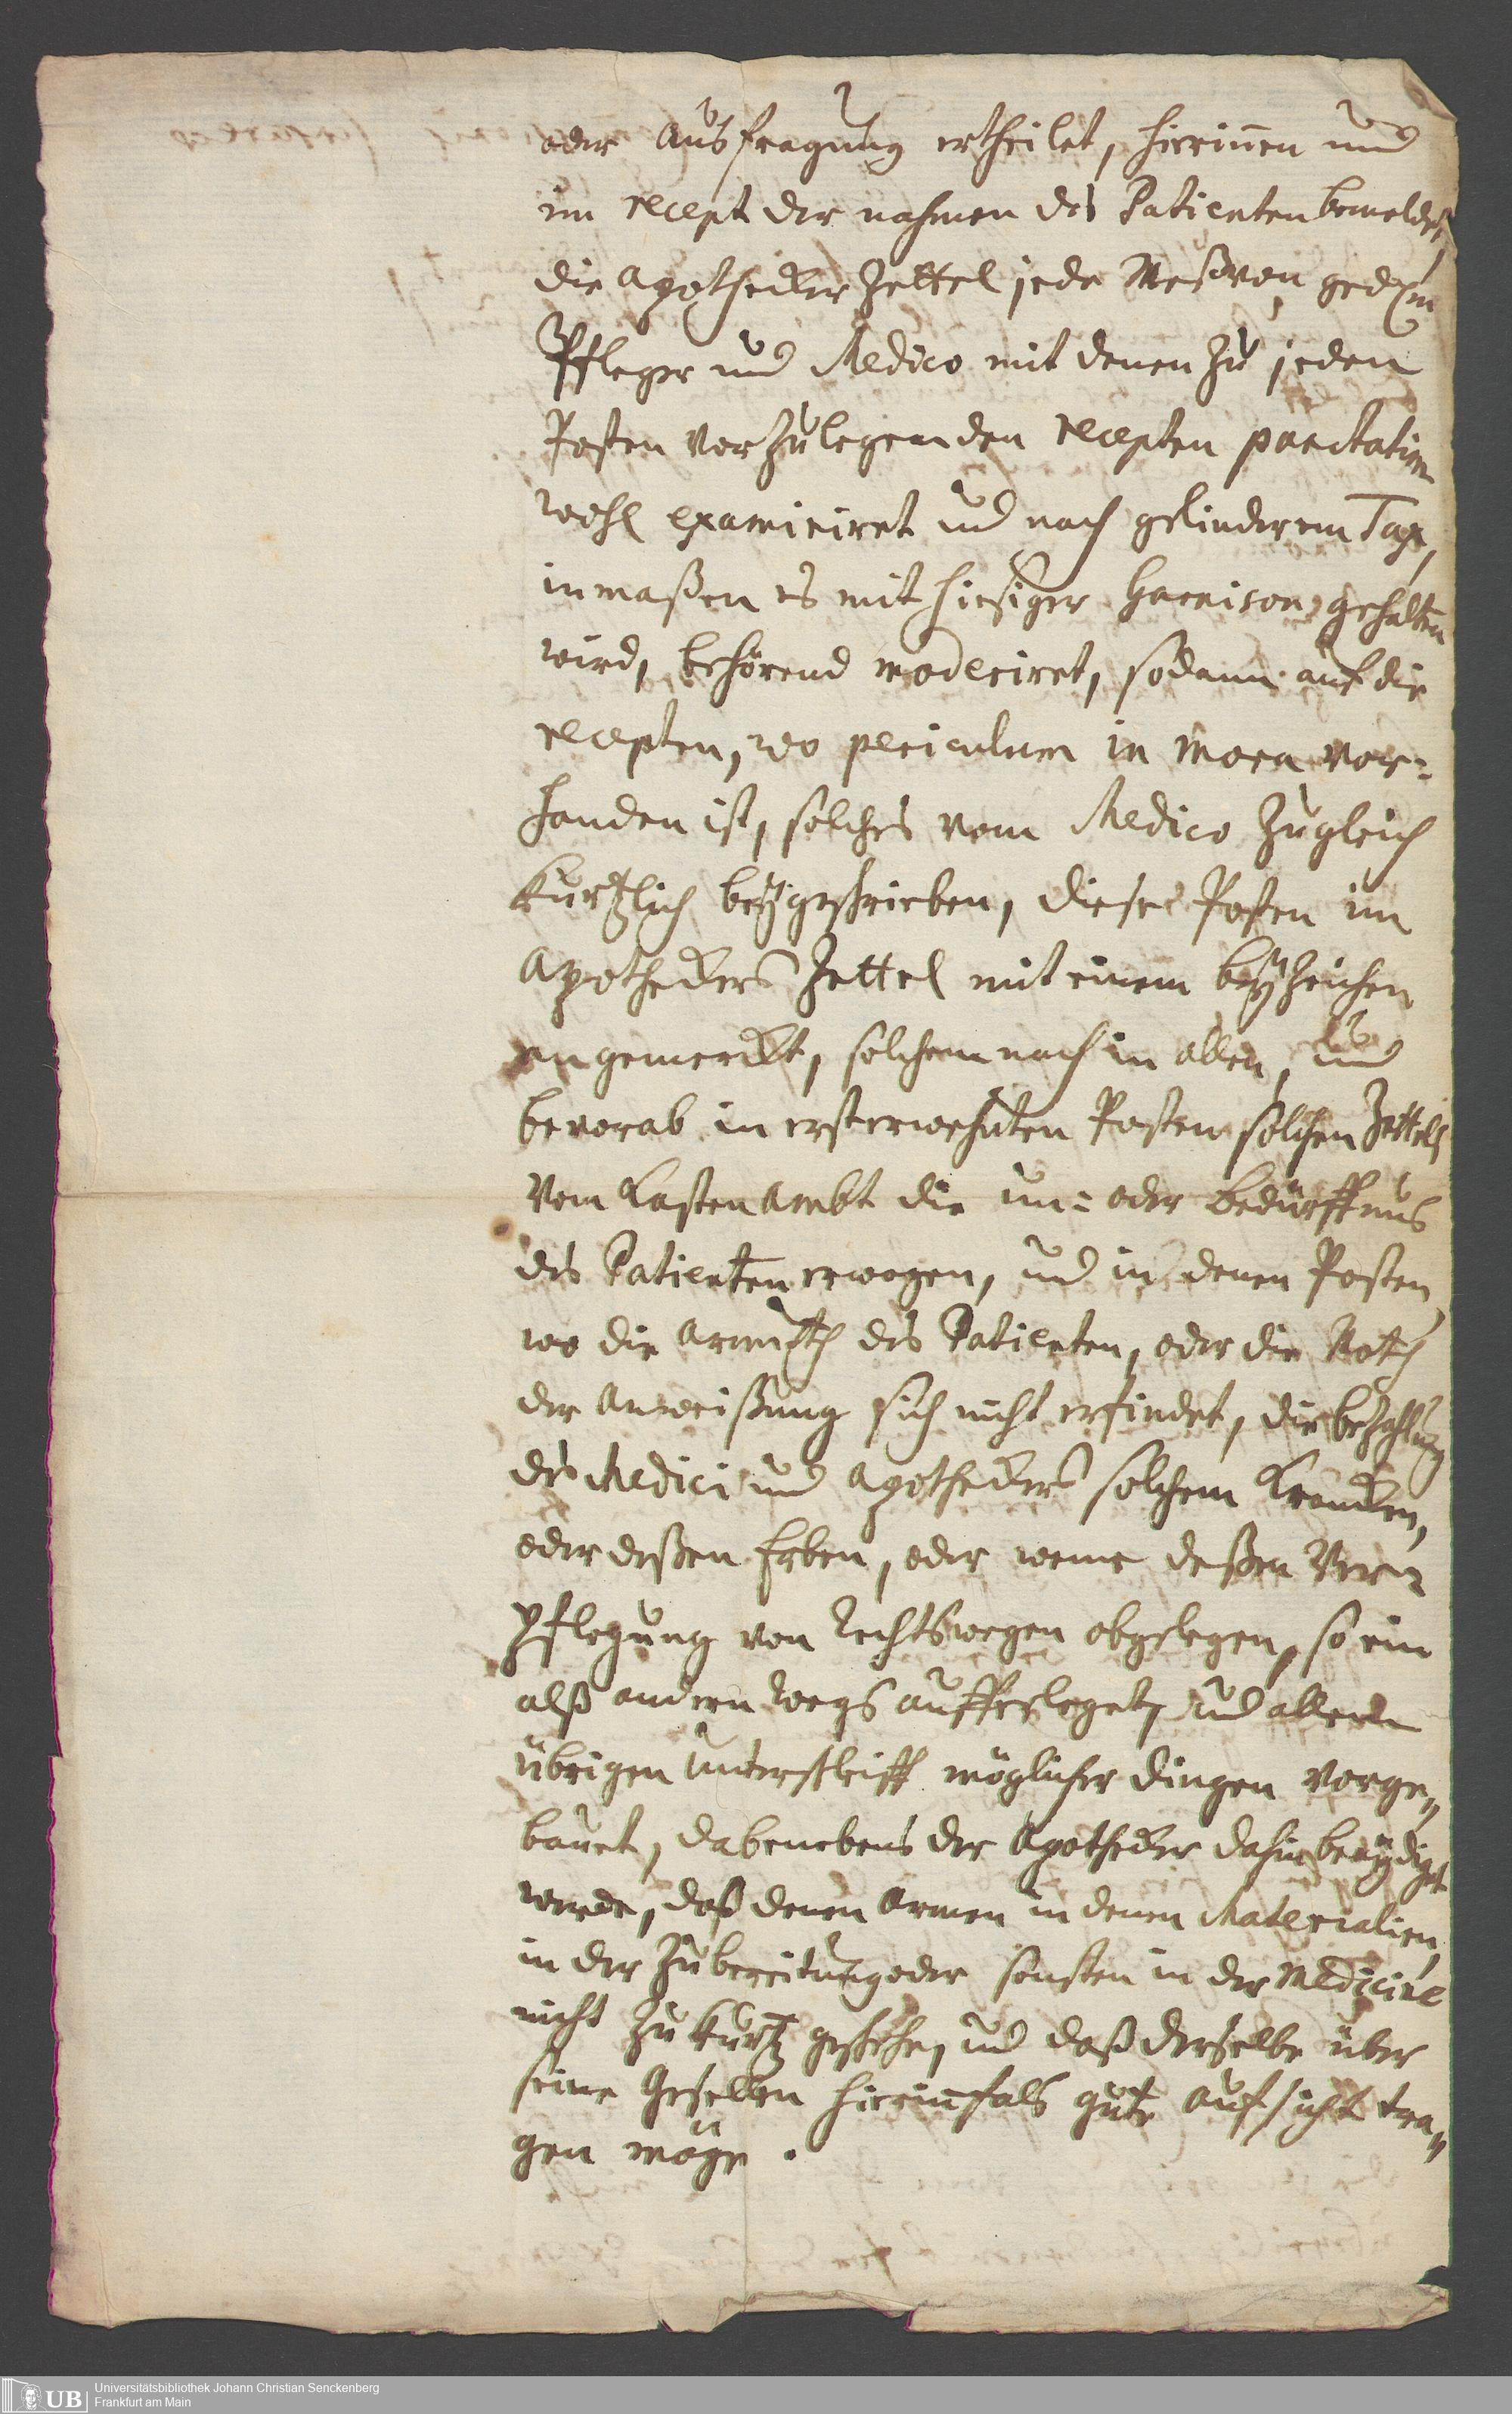 oder ausfragung ertheilet, hierinnen und
im recept der nahmen des Patienten bemeldet,
die Apothecker Zettel jede Meß von
Pfleger und Medico mit denen zu jeden
Posten vorzulegenden recepten
wohl examiniret und nach gelinderem Tax,
inmaßen es mit hiesiger Garnison gehalten
wird, behörend moderiret, sodann auf die
recepten, wo periculum in mora vor=
handen ist, solches vom Medico zugleich
kurtzlich beygeschrieben, diese Posten im
Apotheckers Zettel mit einem beyzeichen
angemerckt, solchem nach in allen, und
bevorab in ersterwehnten Posten solchen Zettels
vom Kasten Ambt die un= oder bedürffnus
des Patienten erwogen, und in denen Posten,
wo die Armuth des Patienten, oder die Noth
der Anweißung sich nicht erfindet, die bezahlung
des Medici und Apotheckers solchem Krancken,
oder deßen Erben, oder weme deßen Ver=
pflegung von Rechtswegen obgelegen, so ein
alß andern Wegs aufferleget, und allem
übrigen Unterschleiff möglicher dingen vorge=
bauet, dabenebens der Apothecker dahin beeydiget
werde, daß denen Armen in denen Materialien,
in der Zubereitung oder sonsten in der Medicine
nicht zu kurtz geschehe, und daß derselbe über
seine Gesellen hierinfals gute aufsicht tra=
gen möge.
UB Universitätsbibliothek Johann Christian Senckenberg
Frankfurt am Main